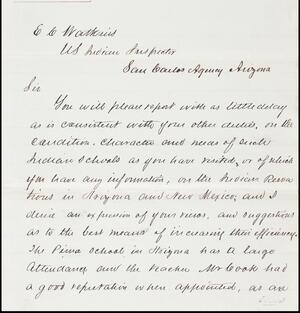 E C Watkins
US Indian Inspector
San Carlos Agency Arizona
Sir
You will please report with as little delay
as is consistent with your other duties, on the
Condition, Character and needs of such
Indian Schools as you have visited, or of which
you have any information, on the Indian Reserva
tions in Arizona and New Mexico; and I
desire an expression of your views, and suggestions
as to the best means of increasing their efficiency.
The Pima School in Arizona has a large
Attendance and the teacher Mr Cook had
a good reputation when appointed, as an